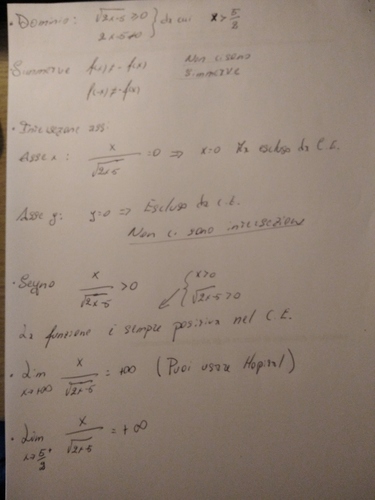 • Dominio: √2x-5 ≥0 } da cui x > 5/2
2x-5≠0
Simmetrie f(x) ≠ -f(x) Non ci sono
f(x) ≠ -f(x) simmetrie
• Intersezione assi:
Asse x: x/√2x-5 = 0 ⇒ x=0 Ma escluso da C.E.
Asse y: y=0 ⇒ Escluso da C.E.
Non ci sono intersezione
• Segno x/√2x-5 > 0 { x>0
√2x-5 > 0
La funzione è sempre positiva nel C.E.
• Lim x→+∞ x/√2x-5 = +∞ (Puoi usare Hopital)
• Lim x→5/2⁺ x/√2x-5 = +∞